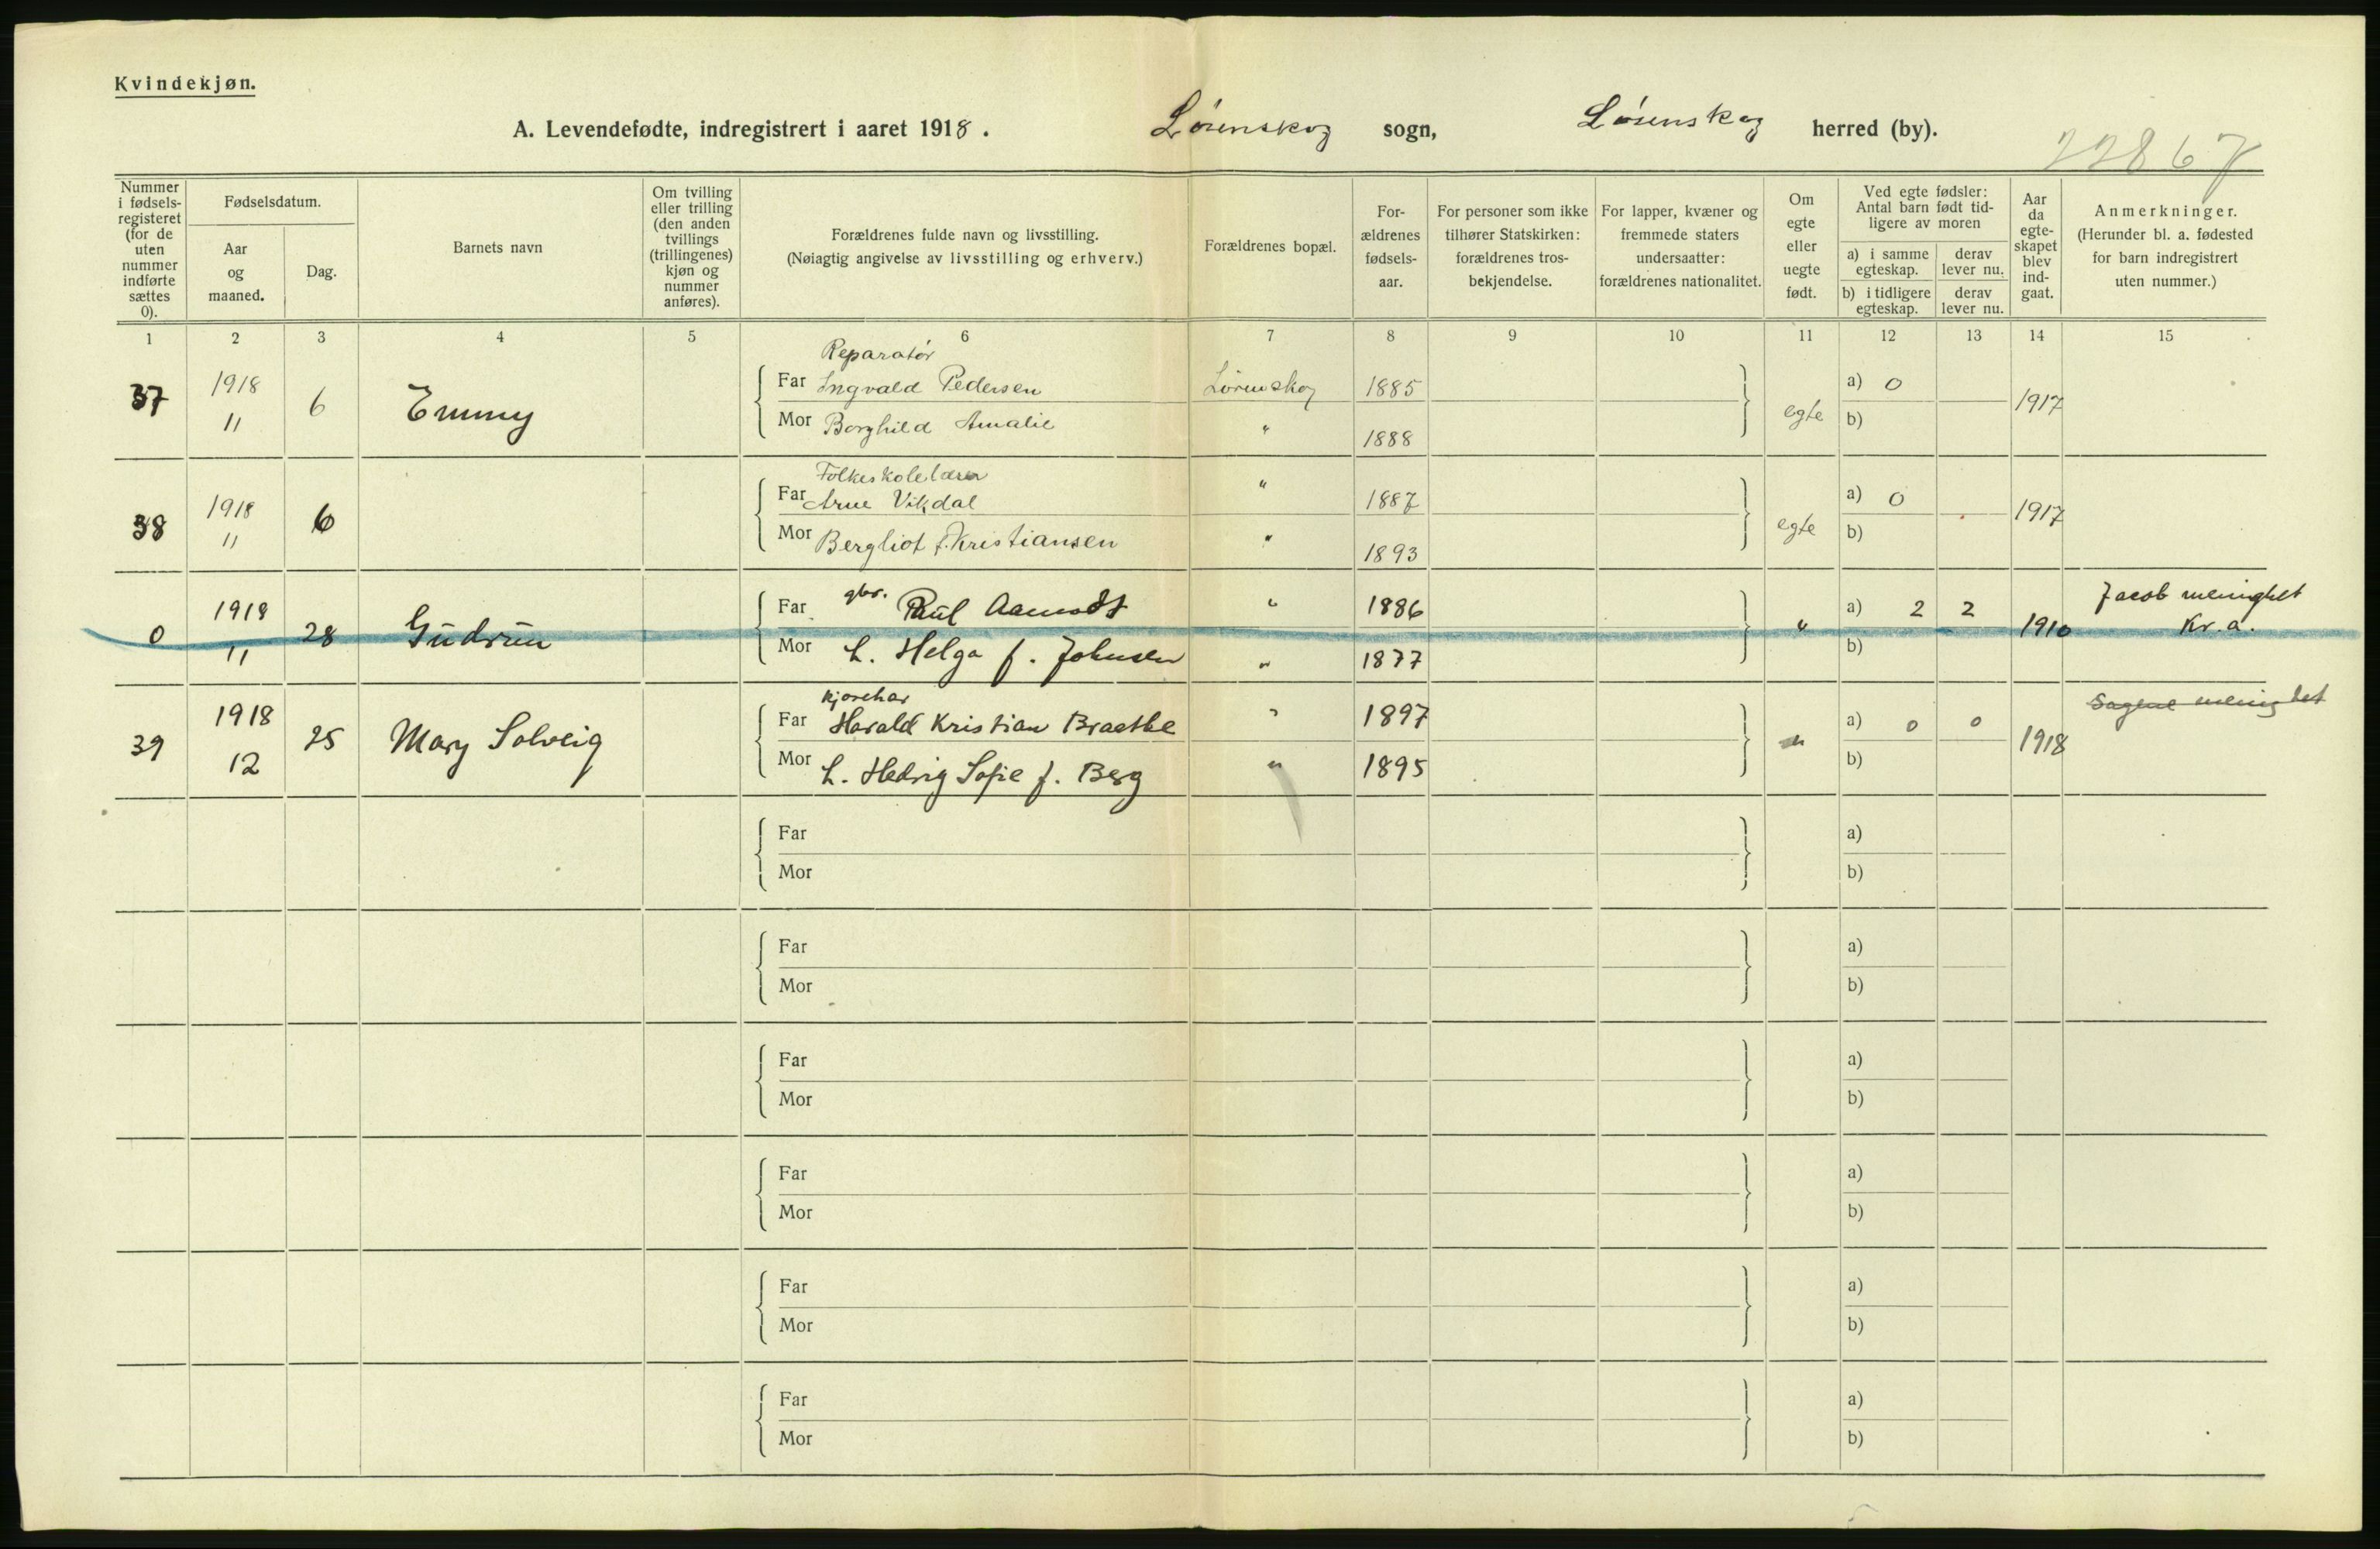 Kvindekjøn.
A. Levendefødte, indregistrert i aaret 1918. Lørenskog sogn, Lørenskog herred (by).
22867
Nummer i fødselsregisteret (for de uten nummer indførte sættes 0).
Fødselsdatum.
Aar og maaned.
Dag.
Barnets navn
Om tvilling eller trilling (den anden tvillings (trillingenes) kjøn og nummer anføres).
Forældrenes fulde navn og livsstilling.
(Nøiagtig angivelse av livsstilling og erhverv.)
Forældrenes bopæl.
Forældrenes fødselsaar.
For personer som ikke tilhører Statskirken: forældrenes trosbekjendelse.
For lapper, kvæner og fremmede staters undersaatter: forældrenes nationalitet.
Om egte eller uegte født.
Ved egte fødsler: Antal barn født tidligere av moren
a) i samme egteskap. derav lever nu.
b) i tidligere egteskap. derav lever nu.
Aar da egteskapet blev indgaat.
Anmerkninger.
(Herunder bl. a. fødested for barn indregistrert uten nummer.)
1 2 3 4 5 6 7 8 9 10 11 12 13 14 15
Reparatør
37 1918 11 6 Emmy Far Ingvald Pedersen Lørenskog 1885 egte a) 0 1917
Mor Borghild Amalie " 1888 b)
Folkeskolelærer
38 1918 11 6 Far Arne Vikdal " 1887 egte a) 0 1917
Mor Bergliot f. Kristiansen " 1893 b)
0 1918 11 28 Gudrun Far gbr. Paul Aamodt " 1886 " a) 2 2 1910 Jacob menighet Kr.a.
Mor h. Helga f. Johnsen " 1877 b)
kjørekar
39 1918 12 25 Mary Solveig Far Harald Kristian Braathe " 1897 " a) 0 0 1918 Sagene menighet
Mor h. Hedvig Sofie f. Berg " 1895 b)
Far a)
Mor b)
Far a)
Mor b)
Far a)
Mor b)
Far a)
Mor b)
Far a)
Mor b)
Far a)
Mor b)